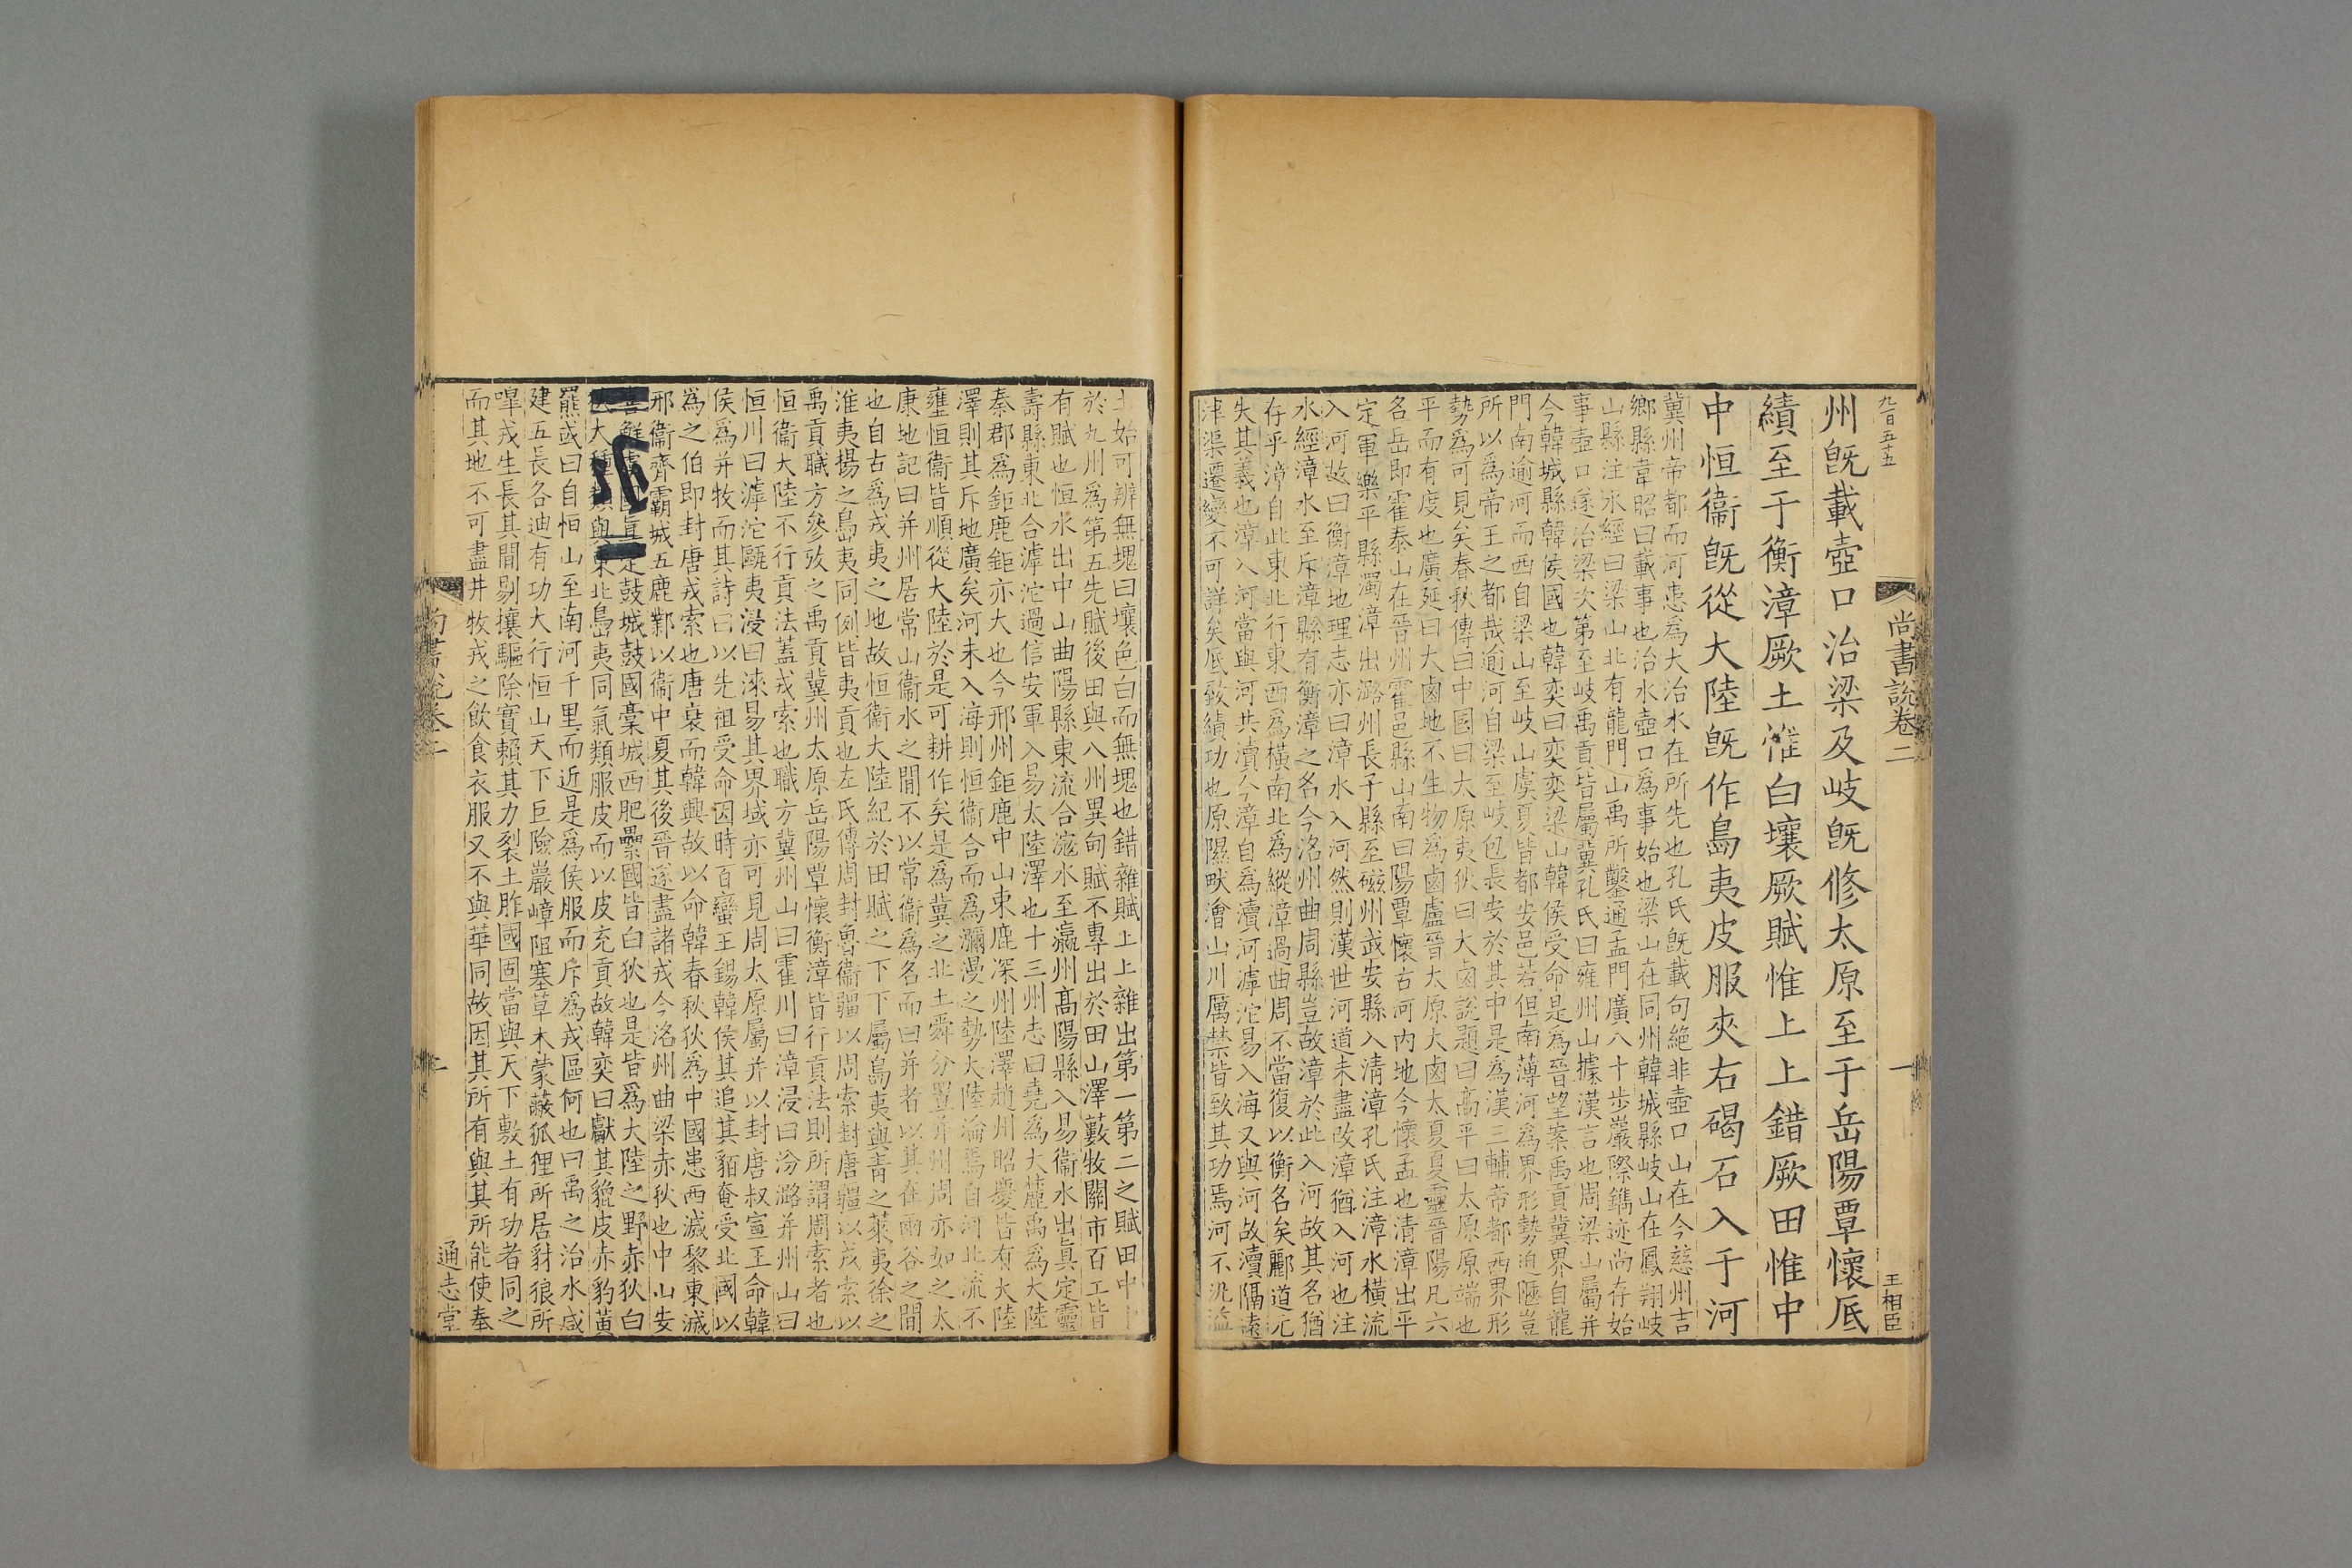 九百五十五
尚書說卷二
一
王相臣
州旣載壺口治梁及岐旣修太原至于岳陽覃懷厎
績至于衡漳厥土惟白壤厥賦惟上上錯厥田惟中
中恒衞旣從大陸旣作島夷皮服夾右碣石入于河
冀州帝都而河患爲大治水在所先也孔氏旣載句絶非壺口山在今慈州吉
鄉縣韋昭曰載事也治水壺口爲事始也梁山在同州韓城縣岐山在鳳翔岐
山縣注水經曰梁山北有龍門山禹所鑿通孟門廣八十步巖際鐫迹尚存始
事壺口遂治梁次第至岐禹貢皆屬冀孔氏曰雍州山據漢言也周梁山屬并
今韓城縣韓侯國也韓奕曰奕奕梁山韓侯受命是爲晉望案禹貢冀界自龍
門南逾河而西自梁山至岐山虞夏皆都安邑若但南薄河爲界形勢迫陋豈
所以爲帝王之都哉逾河自梁至岐包長安於其中是爲漢三輔帝都西界形
勢爲可見矣春秋傳曰中國曰大原夷狄曰大鹵說題曰高平曰太原原端也
平而有度也廣延曰大鹵地不生物爲鹵盧晉太原大鹵太夏夏靈晉陽凡六
名岳即霍泰山在晉州霍邑縣山南曰陽覃懷古河內地今懷孟也清漳出平
定軍樂平縣濁漳出潞州長子縣至磁州武安縣入清漳孔氏注漳水橫流
入河故曰衡漳地理志亦曰漳水入河然則漢世河道未盡改漳猶入河也注
水經漳水至斥漳縣有衡漳之名今洺州曲周縣豈故漳於此入河故其名猶
存乎漳自此東北行東西爲橫南北爲縱漳過曲周不當復以衡名矣酈道元
失其義也漳入河當與河共瀆今漳自爲瀆河滹沱易入海又與河故瀆隔遠
津渠遷變不可詳矣厎致績功也原隰畎澮山川厲禁皆致其功焉河不泛溢
土始可辨無塊曰壤色白而無塊也錯雜賦上上雜出第一第二之賦田中中
於九州爲第五先賦後田與八州異甸賦不專出於田山澤藪牧關市百工皆
有賦也恒水出中山曲陽縣東流合滱水至瀛州高陽縣入易衞水出眞定靈
壽縣東北合滹沱過信安軍入易太陸澤也十三州志曰堯爲大麓禹爲大陸
秦郡爲鉅鹿鉅亦大也今邢州鉅鹿中山束鹿深州陸澤趙州昭慶皆有大陸
澤則其斥地廣矣河未入海則恒衞合而爲瀰漫之勢大陸淪焉自河北流不
壅恒衞皆順從大陸於是可耕作矣是爲冀之北土舜分置并州周亦如之太
康地記曰并州居常山衞水之間不以常衞爲名而曰并者以其在兩谷之間
也自古爲戎夷之地故恒衞大陸紀於田賦之下下屬島夷與靑之萊夷徐之
淮夷揚之島夷同例皆夷貢也左氏傳周封魯衞疆以周索封唐疆以戎索以
禹貢職方參攷之禹貢冀州太原岳陽覃懷衡漳皆行貢法則所謂周索者也
恒衞大陸不行貢法蓋戎索也職方冀州山曰霍川曰漳浸曰汾潞并州山曰
恒川曰滹沱嘔夷浸曰淶易其界域亦可見周太原屬并以封唐叔宣王命韓
侯爲并牧而其詩曰以先祖受命因時百蠻王錫韓侯其追其貊奄受北國以
爲之伯即封唐戎索也唐衰而韓興故以命韓春秋狄爲中國患西滅黎東滅
邢衞齊霸城五鹿鄴以衞中夏其後晉遂盡諸戎今洺州曲梁赤狄也中山安
喜鮮虞國眞定鼓城鼓國稾城西肥纍國皆白狄也是皆爲大陸之野赤狄白
狄大種類與東北島夷同氣類服皮而以皮充貢故韓奕曰獻其貔皮赤豹黃
羆或曰自恒山至南河千里而近是爲侯服而斥爲戎區何也曰禹之治水咸
建五長各迪有功大行恒山天下巨險巖嶂阻塞草木蒙蔽狐狸所居豺狼所
嘷戎生長其間剔攘驅除實賴其力裂土胙國固當與天下敷土有功者同之
而其地不可盡井牧戎之飮食衣服又不與華同故因其所有與其所能使奉
尚書說卷二
一
通志堂